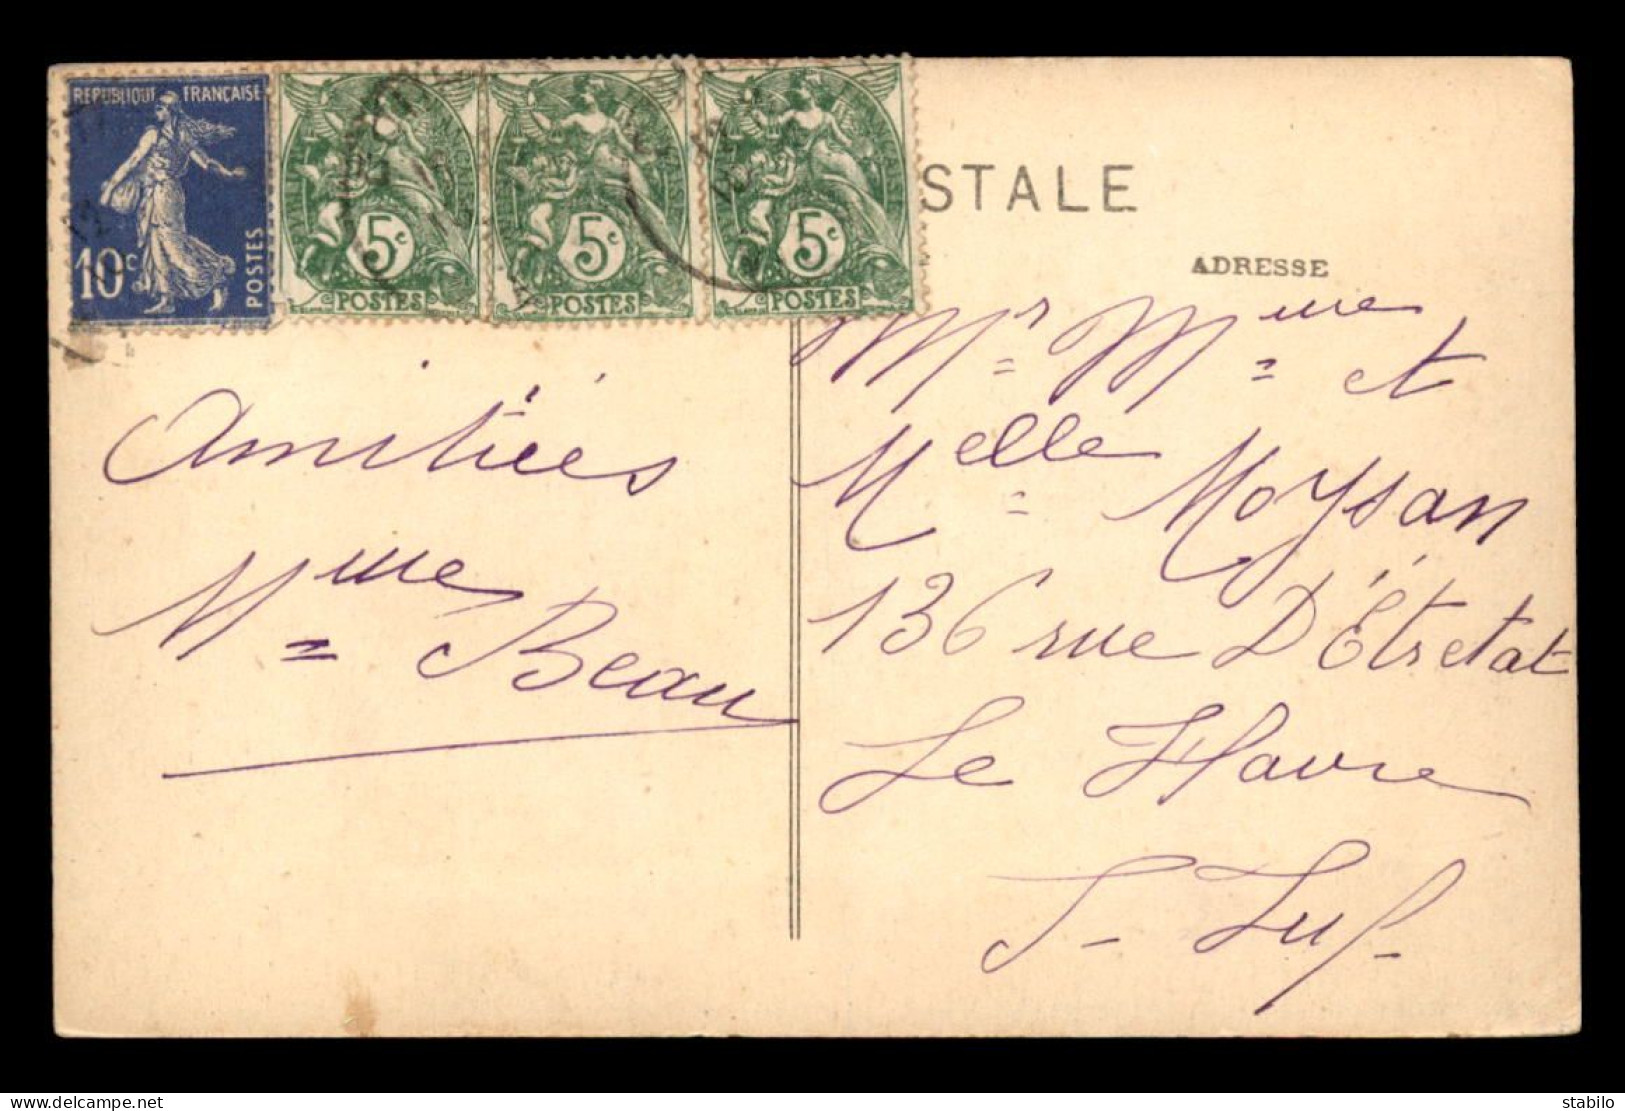 REPUBLIQUE FRANÇAISE
10c POSTES
5c POSTES
5c POSTES
5c POSTES
STALE
ADRESSE
Amitiées
Mme Beau
Mr Mme et
Melle Moysan
136 rue D'Étretat
Le Havre
S- Inf-
delcampe.net
stabilo